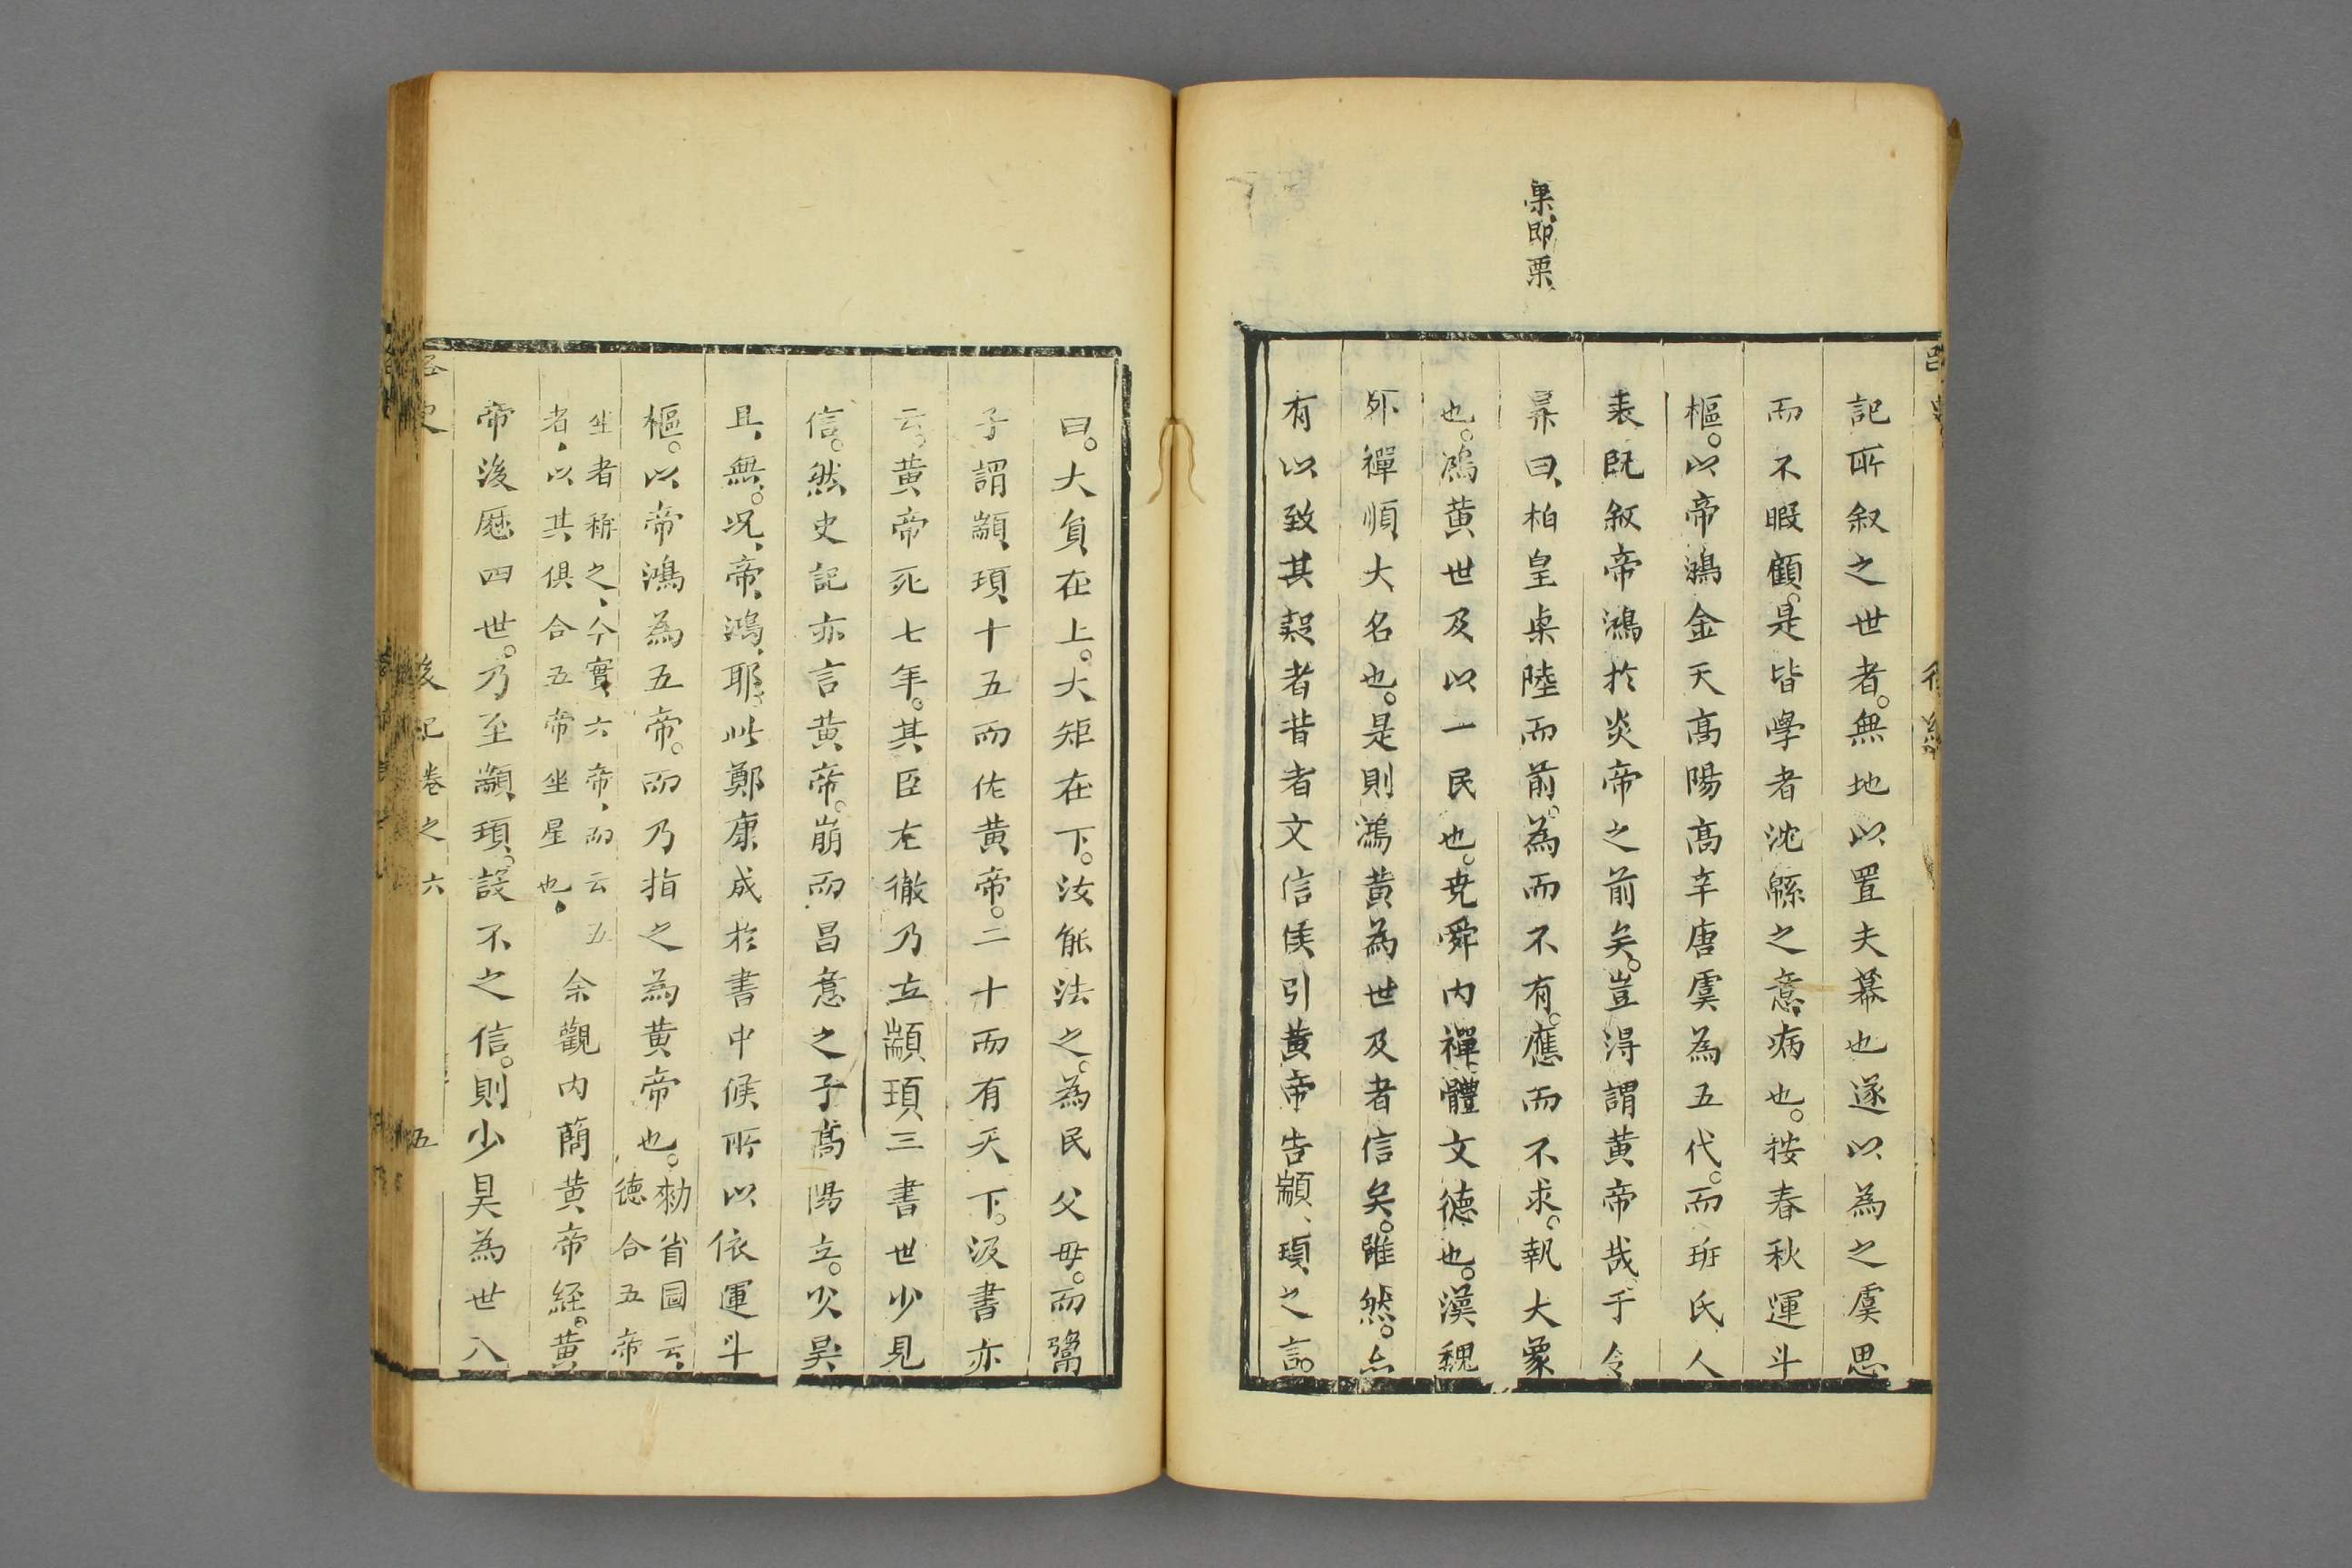 㮚即栗
記所叙之世者。無地以置夫幕也遂以為之虞思
而不暇顧。是皆學者沈緜之意病也。按春秋運斗
樞。以帝鴻金天髙陽髙辛唐虞為五代。而班氏人
表既叙帝鴻於炎帝之前矣。豈得謂黄帝哉。于令
昇曰、柏皇㮚陸而前。為而不有。應而不求。執大象
也。鴻黄世及以一民也。尭舜内禪體文德也。漢魏
外禪順大名也。是則鴻黄為世及者信矣。雖然。亦
有以致其疑者昔者文信侯引黄帝告顓、頊之言。
曰。大負在上。大矩在下。汝能法之。為民父母。而鬻
子謂顓頊十五而佐黄帝。二十而有天下。汲書亦
云。黄帝死七年。其臣左徹乃立顓頊三書世少見
信。然史記亦言黄帝。崩而昌意之子髙陽立。少昊
且、無。况、帝、鴻、耶。此鄭康成於書中候所以依運斗
樞。以帝鴻為五帝。而乃指之為黄帝也。勑省圖云、
德合五帝
坐者稱之、今實六帝、而云五
者、以其俱合五帝坐星也。
余觀内簡黄帝經。黄
帝後歷四世。乃至顓頊。設不之信。則少昊為世八
路史
後紀卷之六
五